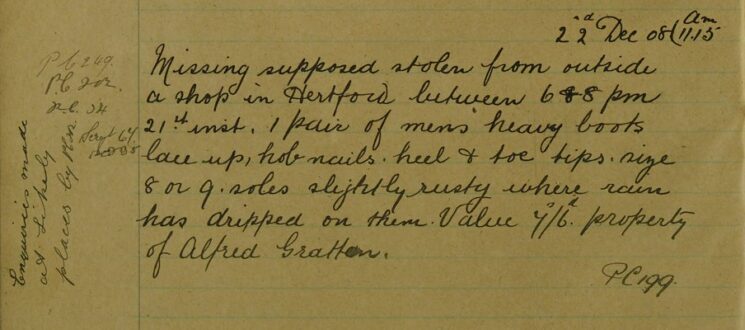 22nd Dec 08 11.15 am
Missing supposed stolen from outside
a shop in Hertford between 6 & 8 pm
21st inst. 1 pair of mens heavy boots
lace up, hob nails. heel & toe tips. size
8 or 9. soles slightly rusty where rain
has dripped on them. Value 7/6d. property
of Alfred Gratton.
PC 199.
PC 249.
PC 202.
P.C. 34
Sergt 64
Enquiries made
at likely
places by